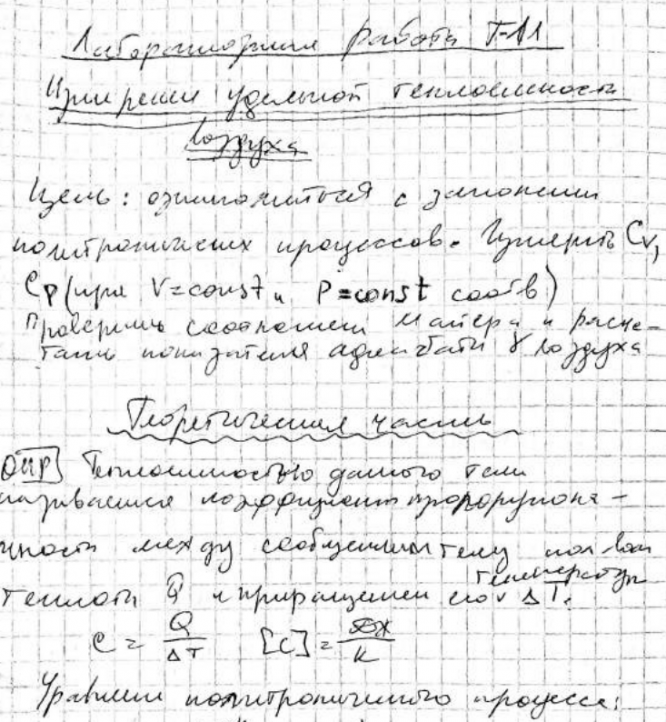 Лабораторная работа Т-11
Измерение удельной теплоемкости
воздуха
Цель: ознакомиться с законами
политропических процессов. Измерить Cv,
Cp (при V=const и P=const соотв)
Проверить соотношение Майера и рассчи-
тать показателя адиабаты γ воздуха
Теоретическая часть
Опр] Теплоемкостью данного тела
называется коэффициент пропорциона-
льности между сообщенным телу кол-вом
теплоты Q и приращением его v температуры ΔT.
C = Q/ΔT [C] = Дж/К
Уравнение политропического процесса: